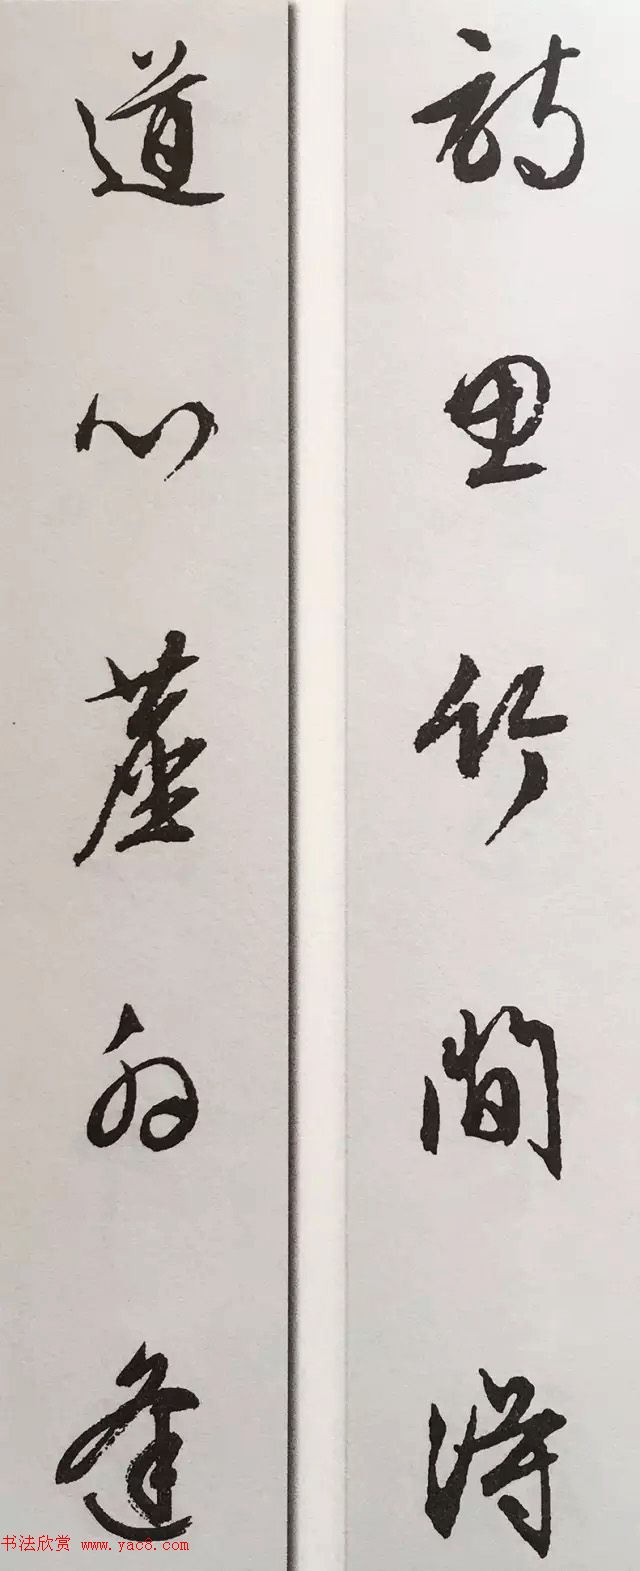 詩思竹間得
道心塵外逢
书法欣赏 www.yac8.com